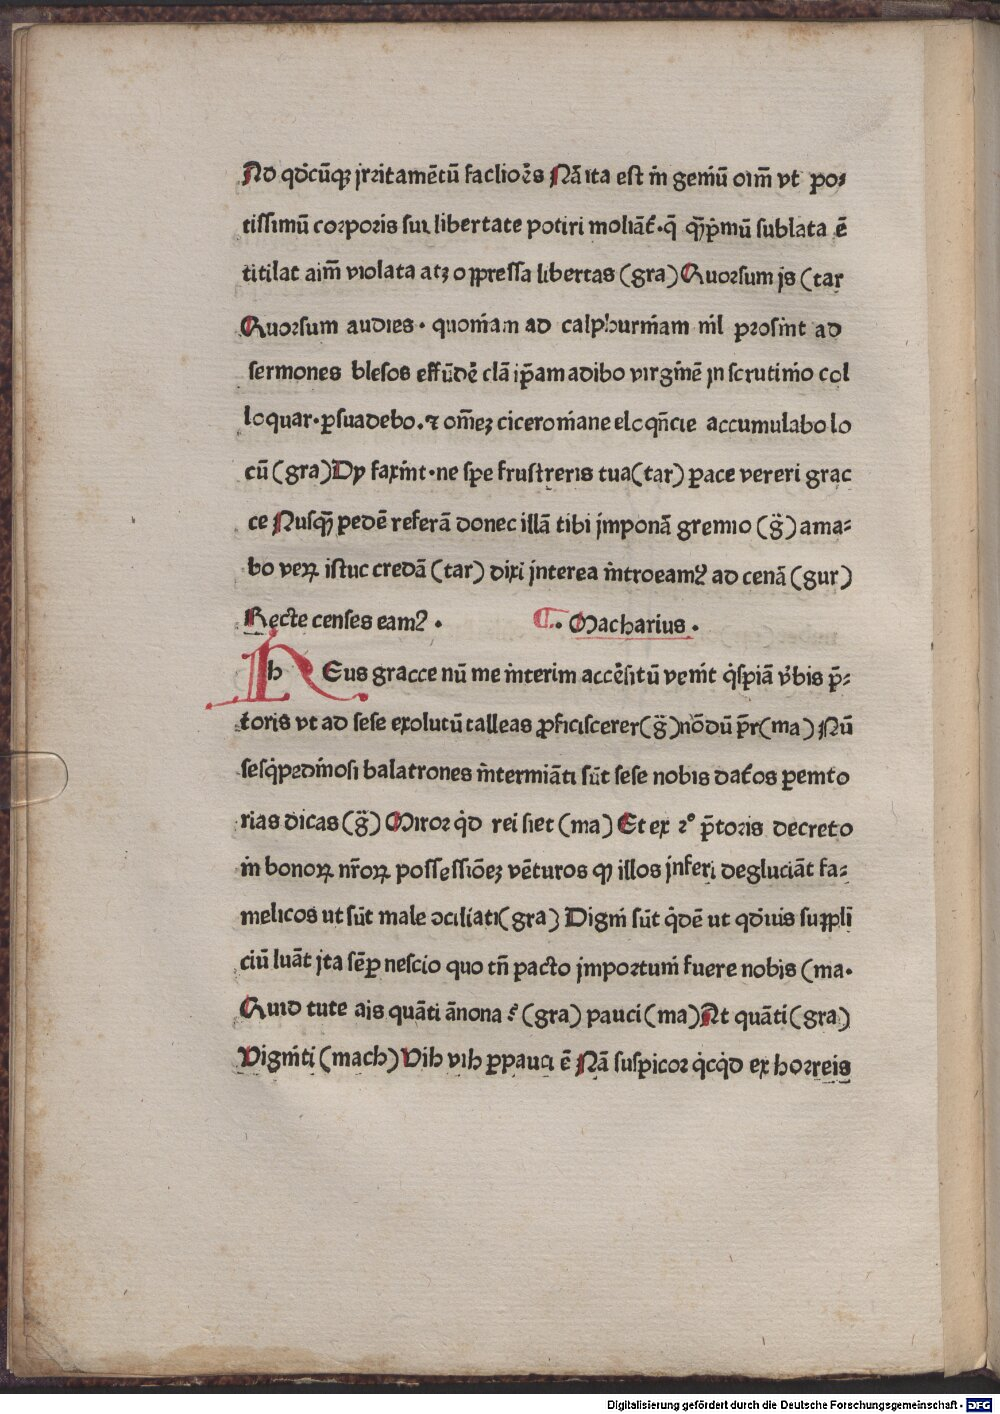 Ad qđcūqꝫ jrritamētū facliorēs Nā ita est m̄ gemiū oim̄ vt po⸗
tissimū corporis sui libertate potiri moliāt᷑·q̄ qꝙ̄pmū sublata ē
titilat aim̄ violata atꝫ oppressa libertas (gra) Quorsum js (tar
Quorsum audies· quoniam ad calphurniam nīl prosint ad
sermones blesos effūdēt clā ip̄am adibo virginē jn scrutinio col
loquar·ꝑsuadebo.⁊ om̄eꝫ ciceroniane eloqn̄cie accumulabo lo
cū (gra) Dy faxint·ne spe frustreris tua (tar) pace vereri grac
ce Nusqꝙ̄ pedē referā donec illā tibi jmponā gremio (g̈) ama⸗
bo veꝝ istuc credā (tar) dixi jnterea introeamꝰ ad cenā (gur)
Recte censes eamꝰ ·
¶· Macharius ·
h Eus gracce nū me interim accēsitū venit q̇spiā vrbis p̄⸗
toris vt ad sese exolutū talleas ꝓficiscerer (g̈) nōdū p̄r (ma) Nū
sesq̇pedmosi balatrones intermiāti sūt sese nobis datos pemto
rias dicas (g̈) Miror q̇d rei siet (ma) Et ex 2º p̄toris decreto
in bonoꝝ nr̄oꝝ possessiōeꝫ vēturos qꝫ illos jnferi degluciāt fa⸗
melicos ut sūt male ↄciliati (gra) Digni sūt q̇dē ut qđuis suppli
ciū luāt jta sēp nescio quo tn̄ pacto jmportuni fuere nobis (ma·
Quid tute ais quāti ānona ē (gra) pauci (ma) At quāti (gra)
Viginti (mach) Vih vih ꝑpauci ē Nā suspicor q̇cq̇d ex horreis
Digitalisierung gefördert durch die Deutsche Forschungsgemeinschaft · DFG